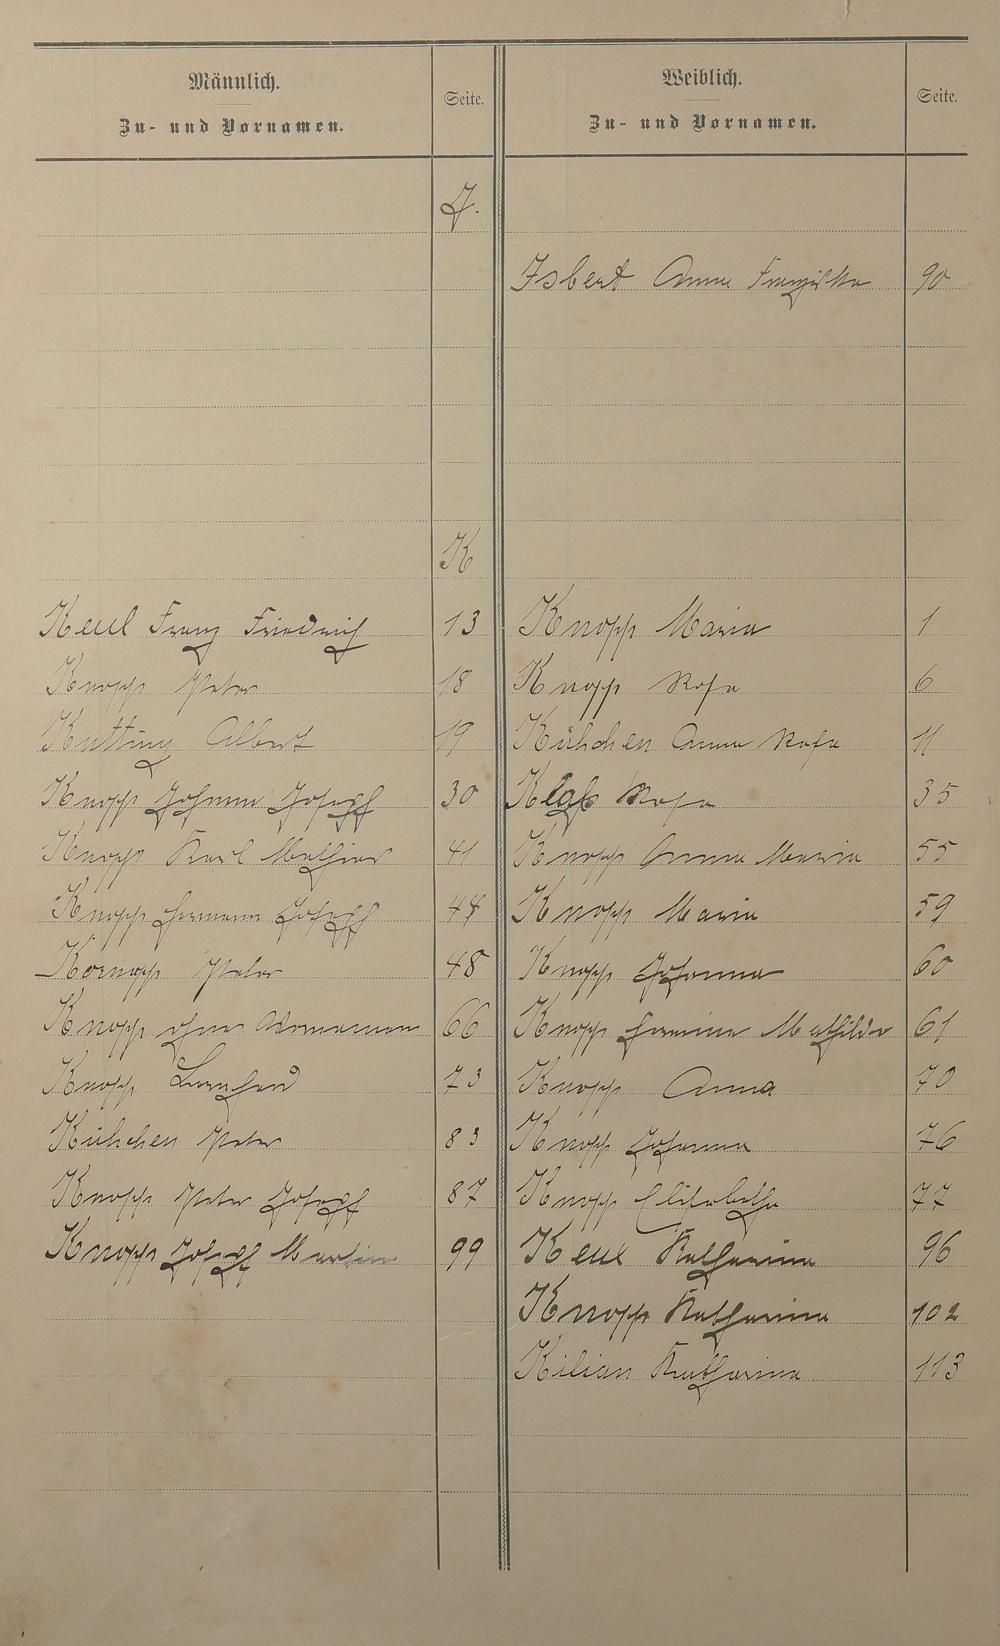 Männlich.
Zu- und Vornamen.
Seite.
Weiblich.
Zu- und Vornamen.
Seite.
J.
Isbert Anna Franziska 90
K
Keul Franz Friedrich 13 Knopp Maria 1
Knopp Peter 18 Knopp Rosa 6
Kutting Albert 19 Kühchen Anna Rosa 11
Knopp Johann Josepf 30 Klaß Rosa 35
Knopp Karl Mathias 41 Knopp Anna Maria 55
Knopp Hermann Josepf 44 Knopp Maria 59
Knopp Peter 48 Knopp Johanna 60
Knopp ohne Vornamen 66 Knopp Hermine Mathilde 61
Knopp Bernhard 73 Knopp Anna 70
Kühchen Peter 83 Knopp Johanna 76
Knopp Peter Josepf 87 Knopp Elisabetha 77
Knopp Josepf Martin 99 Keul Katharina 96
Knopp Katharina 102
Kilian Katharina 113